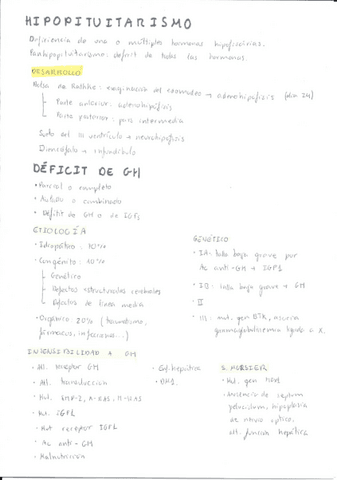 HIPOPITUITARISMO
Deficiencia de una o múltiples hormonas hipofisarias.
Panhipopituitarismo: déficit de todas las hormonas
DESARROLLO
Bolsa de Rathke: invaginación del estomodeo → adenohipófisis (día 24)
Parte anterior: adenohipófisis
Parte posterior: pars intermedia
Suelo del III ventrículo → neurohipófisis
Diencéfalo → infundíbulo
DÉFICIT DE GH
• Parcial o completo
• Aislado o combinado
• Déficit de GH o de IGF1
ETIOLOGÍA
• Idiopático: 70%
• Congénito: 10%
Genético
Defectos estructurales cerebrales
Defectos de línea media
• Orgánico 20% (traumatismo,
fármacos, infecciones...)
GENÉTICO
• IA: talla baja grave por
Ac anti-GH → IGF1
• IB: talla baja grave → GH
• II
• III: mut. gen BTK,
gammaglobulinemia ligada a X.
INSENSIBILIDAD A GH
• Alt. receptor GH
• Alt. transducción
• Mut.
• Mut. IGF1
• Mut receptor IGF1
• Ac anti-GH
• Malnutrición
• Enf. hepática
• DM1.
S. MORSIER
• Mut. gen
• Ausencia de septum
pelucidum, hipoplasia
de nervio óptico,
alt. función hepática